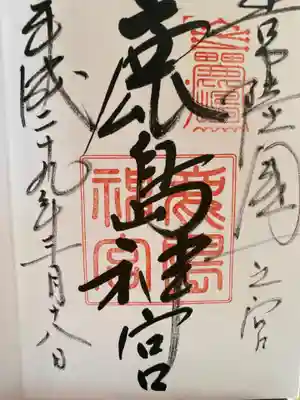 常陸国一之宮
鹿島神宮
鹿島
神宮
平成二十九年二月十八日